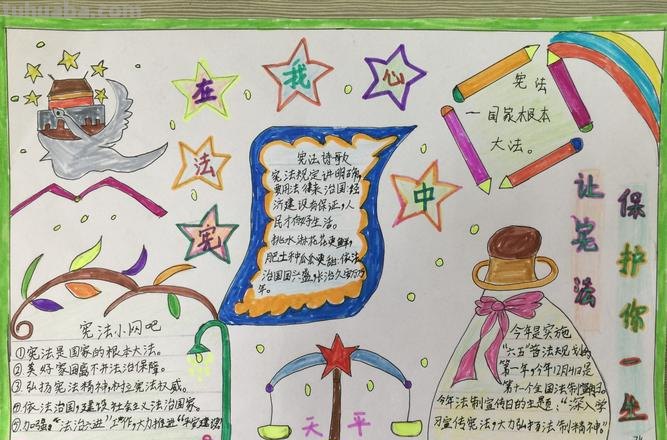 tuhuaba.com
宪法在我心中
宪法
一国家根本
大法。
让宪法
保护你一生
宪法诗歌
宪法规定讲明确,
要用法律来治国;经
济建设有保证,人
民才有好生活。
桃水淋花花更鲜,
肥土种瓜瓜更甜;依法
治国国兴盛,长治久安万
年。
宪法小网吧
①宪法是国家的根本大法。
②美好家园离不开法治保障。
③弘扬宪法精神,树立宪法权威。
④依法治国,建设社会主义法治国家。
⑤加强"法治六进"工作,大力推进"平安建设"
天平
今年是实施
"六五"普法大规划的
第一年,今年12月4日是
第十一个全国法制宣传日。
今年法制宣传日的主题:"深入学
习宣传宪法,大力弘扬法制精神"